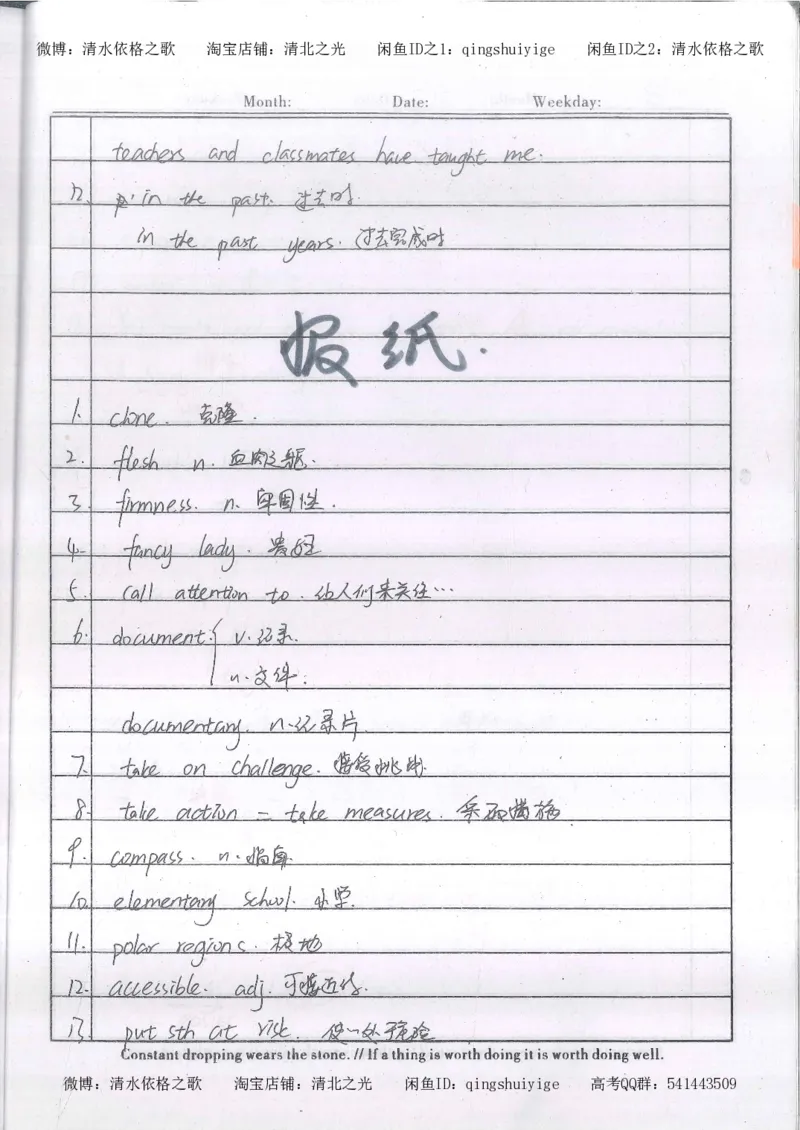 微博：清水依格之歌 淘宝店铺：清北之光 闲鱼ID之1：qingshuiyige 闲鱼ID之2：清水依格之歌
Month: Date: Weekday:
teachers and classmates have taught me.
12. in the past. 过去时.
in the past years. 过去完成时
报纸.
1. clone. 克隆.
2. flesh n. 血肉之躯.
3. firmness. n. 牢固性.
4. fancy lady. 贵妇
5. call attention to. 让人们来关注…
6. document. { v. 记录.
n. 文件.
documentary. n. 记录片
7. take on challenge. 接受挑战.
8. take action = take measures. 采取措施
9. compass. n. 指南.
10. elementary school. 小学.
11. polar regions. 极地
12. accessible. adj. 可接近的.
13. put sth at risk. 使…处于危险
Constant dropping wears the stone. // If a thing is worth doing it is worth doing well.
微博：清水依格之歌 淘宝店铺：清北之光 闲鱼ID：qingshuiyige 高考QQ群：541443509